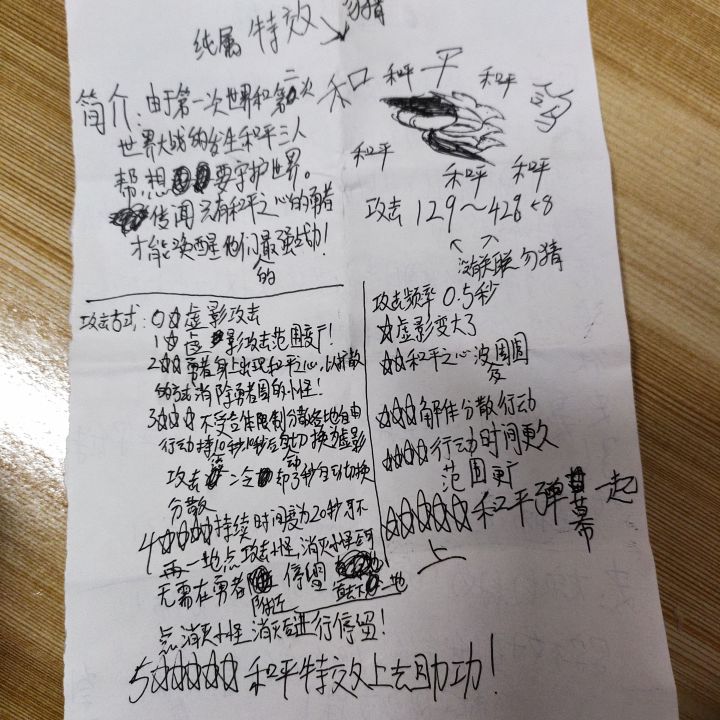 纯属特效 勿猜
和 和平 平 和平
简介:由于第一次世界和第二次
世界大战的台生和平三人
帮想要守护世界。
传闻只有和平之心的勇者
才能唤醒他们的最强战功!
和平
和平 和平
攻击 129~428+8
没关联勿猜
攻击方式:0☆虚影攻击
1☆虚影攻击范围变广!
2☆☆勇者身上出现和平之心,以扩散
的方式消除勇者周的小怪!
3☆☆☆不受立体限制分散各地自由
行动持10秒10秒后自动切换为虚影
攻击 冷却了秒自动切换
分散
4☆☆☆☆持续时间变为20秒可不
再一地点攻击小怪,消灭小怪
无需在勇者附近停留
点消灭小怪消灭后进行停留!
5☆☆☆☆☆和平特效上去助功!
攻击频率0.5秒
☆虚影变大了
☆☆和平之心波及周围
☆☆☆解体分散行动
☆☆☆☆行动时间更久
范围更广
☆☆☆☆☆和平弹幕一起
上